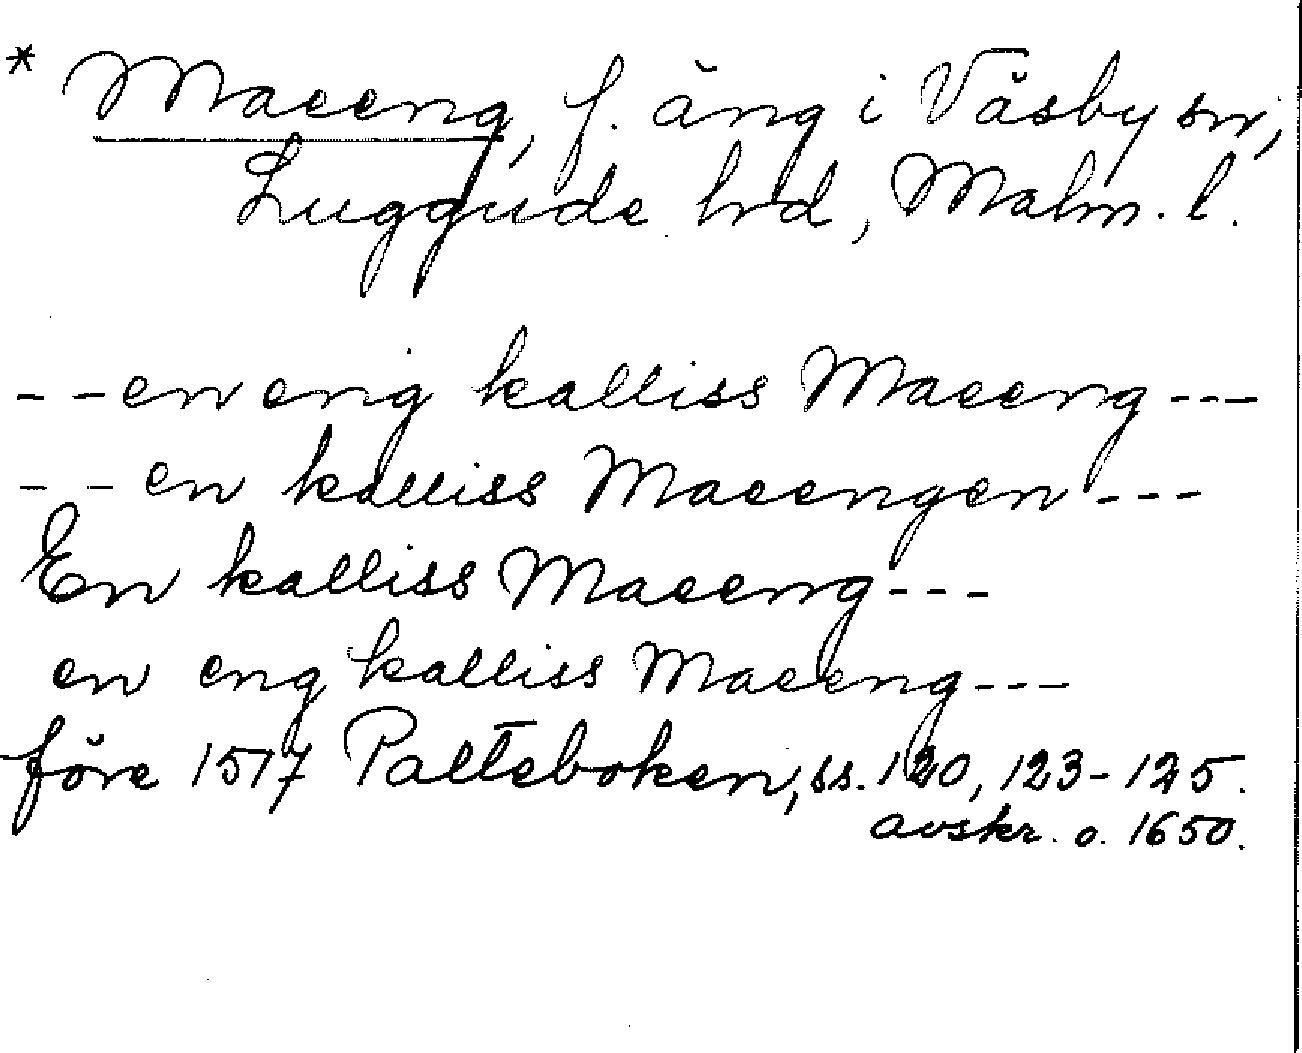 * Maeeng, f. äng i Väsby sn,
Luggude hrd, Malm. l.
- - en eng kalliss Maeeng - - -
- - en kalliss Maeengen - - -
En kalliss Maeeng - - -
en eng kalliss Maeeng - - -
före 1517 Palteboken, ss. 120, 123-125.
avskr. o. 1650.